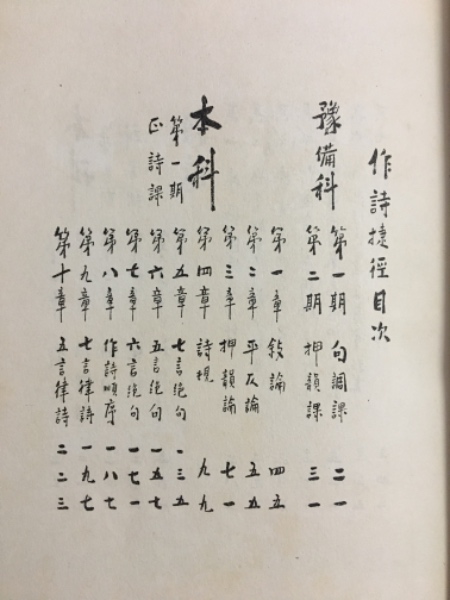 作詩捷徑目次
豫備科
第一期 句調課 二一
第二期 押韻課 三一
本科
第一期
正詩課
第一章 敍論 四五
第二章 平仄論 五五
第三章 押韻論 七一
第四章 詩規 九九
第五章 七言絶句 一三五
第六章 五言絶句 一五七
第七章 六言絶句 一七一
第八章 作詩順序 一八七
第九章 七言律詩 一九七
第十章 五言律詩 二二三